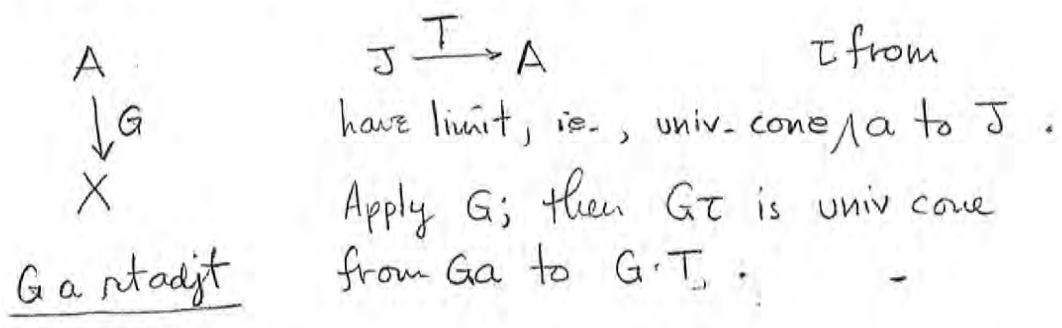 A
↓ G
X
G a rt adjt
J —T→ A
have limit, ie., univ. cone τ from a to J.
Apply G; then Gτ is univ cone
from Ga to G·T.